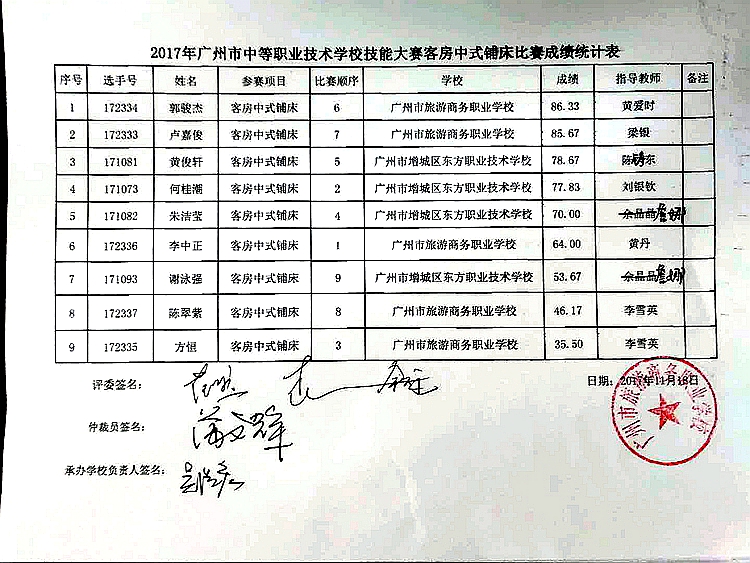 2017年广州市中等职业技术学校技能大赛客房中式铺床比赛成绩统计表
序号 选手号 姓名 参赛项目 比赛顺序 学校 成绩 指导教师 备注
1 172334 郭骏杰 客房中式铺床 6 广州市旅游商务职业学校 86.33 黄爱时
2 172333 卢嘉俊 客房中式铺床 7 广州市旅游商务职业学校 85.67 梁银
3 171081 黄俊轩 客房中式铺床 5 广州市增城区东方职业技术学校 78.67 陈东
4 171073 何桂潮 客房中式铺床 2 广州市增城区东方职业技术学校 77.83 刘银钦
5 171082 朱洁莹 客房中式铺床 4 广州市增城区东方职业技术学校 70.00 余晶晶
6 172336 李中正 客房中式铺床 1 广州市旅游商务职业学校 64.00 黄丹
7 171093 谢泳强 客房中式铺床 9 广州市增城区东方职业技术学校 53.67 余晶晶
8 172337 陈翠紫 客房中式铺床 8 广州市旅游商务职业学校 46.17 李雪英
9 172335 方恒 客房中式铺床 3 广州市旅游商务职业学校 35.50 李雪英
评委签名：
日期：2017年11月18日
仲裁员签名：
承办学校负责人签名：
广州市旅游商务职业学校